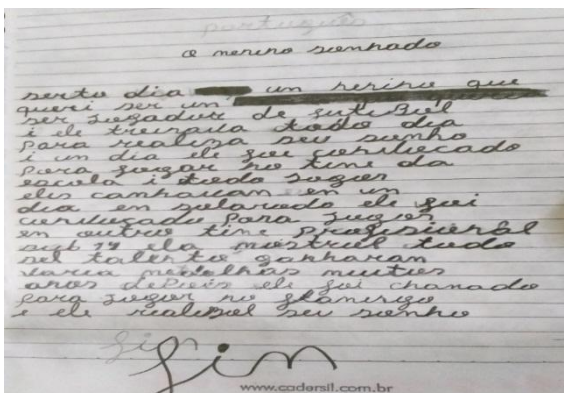 português
o menino sonhado
serto dia un menino que
queri ser un
ser jogadur de futibol
i ele treinava todo dia
para realiza seu sonho
i un dia ele foi convucado
para jogar no time da
escola i todo jogos
elis camhavam en un
dia en solarado ele foi
convucado para jugar
en outro time profisional
sub 17 ela mostrul tudo
sel talento ganharam
varia medalhas muitos
anos depois ele foi chamado
para jogar no flamingo
e ele realisol seu sonho
fin
fim
www.cadersil.com.br